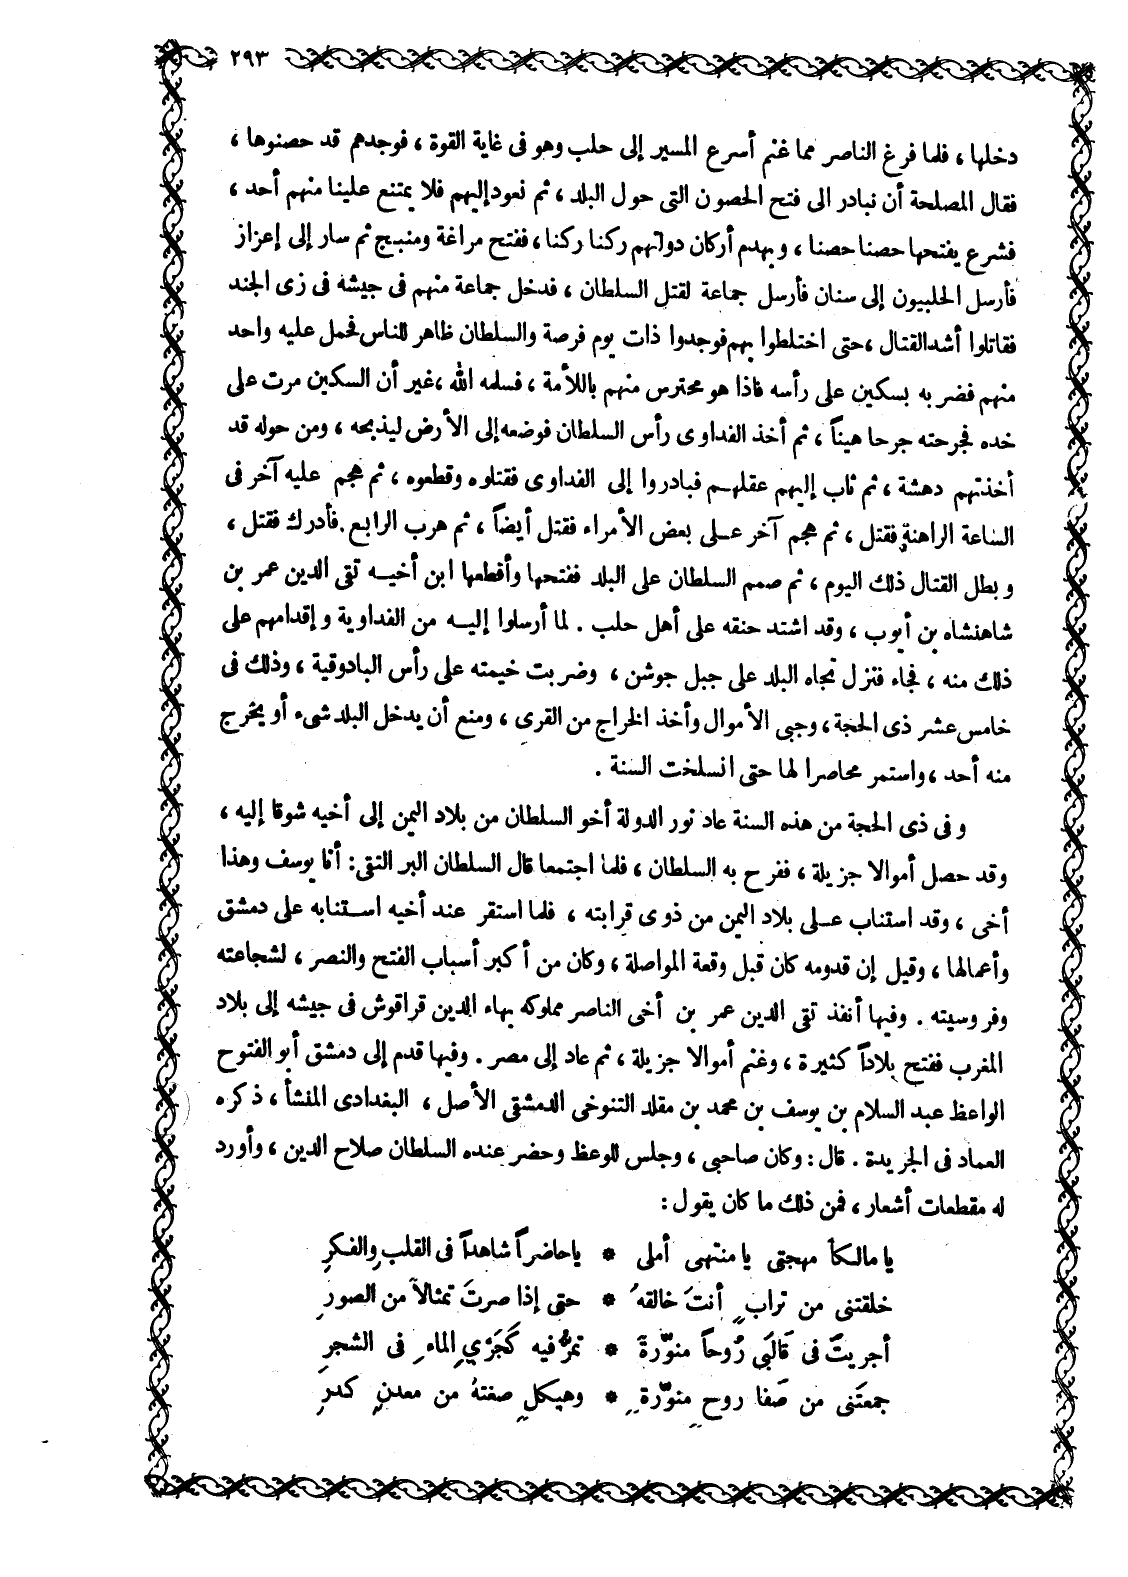 ٢٩٣
دخلها ، فلما فرغ الناصر مما غنم أسرع المسير إلى حلب وهو فى غاية القوة ، فوجدهم قد حصنوها ،
فقال المصلحة أن نبادر الى فتح الحصون التى حول البلد ، ثم نعود إليهم فلا يمتنع علينا منهم أحد ،
فشرع يفتحها حصنا حصنا ، ويهدم أركان دولتهم ركنا ركنا ، ففتح مراغة ومنبج ثم سار إلى إعزاز
فأرسل الحلبيون إلى سنان فأرسل جماعة لقتل السلطان ، فدخل جماعة منهم فى جيشه فى زى الجند
فقاتلوا أشد القتال ، حتى اختلطوا بهم فوجدوا ذات يوم فرصة والسلطان ظاهر للناس فحمل عليه واحد
منهم فضربه بسكين على رأسه فاذا هو محترس منهم باللأمة ، فسلمه الله ، غير أن السكين مرت على
خده فجرحته جرحا هيناً ، ثم أخذ الفداوى رأس السلطان فوضعه إلى الأرض ليذبحه ، ومن حوله قد
أخذتهم دهشة ، ثم ثاب إليهم عقلهم فبادروا إلى الفداوى فقتلوه وقطعوه ، ثم هجم عليه آخر فى
الساعة الراهنة فقتل ، ثم هجم آخر على بعض الأمراء فقتل أيضاً ، ثم هرب الرابع فأدرك فقتل ،
وبطل القتال ذلك اليوم ، ثم صمم السلطان على البلد ففتحها وأقطعها ابن أخيه تقى الدين عمر بن
شاهنشاه بن أيوب ، وقد اشتد حنقه على أهل حلب . لما أرسلوا إليه من الفداوية وإقدامهم على
ذلك منه ، فجاء فنزل تجاه البلد على جبل جوشن ، وضربت خيمته على رأس البادوقية ، وذلك فى
خامس عشر ذى الحجة ، وجبى الأموال وأخذ الخراج من القرى ، ومنع أن يدخل البلد شىء أو يخرج
منه أحد ، واستمر محاصرا لها حتى انسلخت السنة .
وفى ذى الحجة من هذه السنة عاد نور الدولة أخو السلطان من بلاد اليمن إلى أخيه شوقا إليه ،
وقد حصل أموالا جزيلة ، ففرح به السلطان ، فلما اجتمعا قال السلطان البر التقى : أنا يوسف وهذا
أخى ، وقد استناب على بلاد اليمن من ذوى قرابته ، فلما استقر عند أخيه استنابه على دمشق
وأعمالها ، وقيل إن قدومه كان قبل وقعة المواصلة ، وكان من أكبر أسباب الفتح والنصر ، لشجاعته
وفروسيته . وفيها أنفذ تقى الدين عمر بن أخى الناصر مملوكه بهاء الدين قراقوش فى جيشه إلى بلاد
المغرب ففتح بلاداً كثيرة ، وغنم أموالا جزيلة ، ثم عاد إلى مصر . وفيها قدم إلى دمشق أبو الفتوح
الواعظ عبد السلام بن يوسف بن محمد بن مقلد التنوخى الدمشقى الأصل ، البغدادى المنشأ ، ذكره
العماد فى الجريدة . قال : وكان صاحبى ، وجلس للوعظ وحضر عنده السلطان صلاح الدين ، وأورد
له مقطعات أشعار ، فمن ذلك ما كان يقول :
يا مالكاً مهجتى يا منتهى أملى * يا حاضراً شاهداً فى القلب والفكرِ
خلقتنى من ترابٍ أنتَ خالقهُ * حتى إذا صرتَ تمثالاً من الصورِ
أجريتَ فى قَالَبى رُوحاً منوّرةً * تمرُّ فيه كَجَرْي الماءِ فى الشجرِ
جمعتَنى من صَفا روحٍ منوّرةٍ * وهيكلٍ صغتهُ من معدنٍ كدرِ